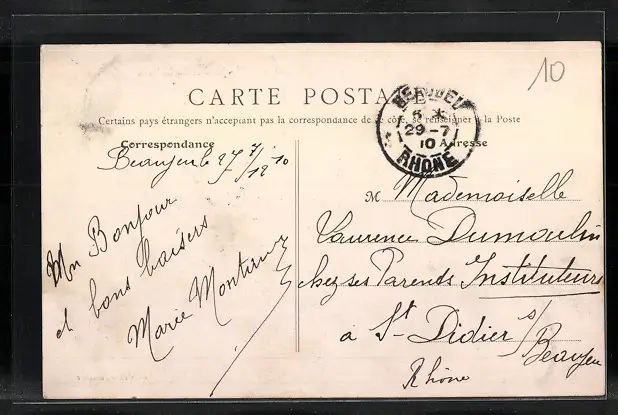 10
CARTE POSTALE
Certains pays étrangers n'acceptant pas la correspondance de ce côté, se renseigner à la Poste
Correspondance
Beaujeu le 27/7/1910
Un Bonjour
et bons baisers
Marie
BEAUJEU
29-7
10
RHÔNE
Adresse
M Mademoiselle
Laurence Dumoulin
chez ses Parents Instituteurs
à St Didier s/
Beaujeu
Rhône